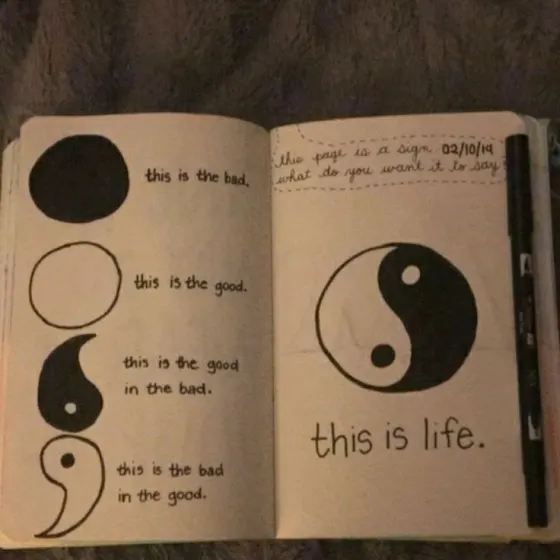 this is the bad.
this is the good.
this is the good
in the bad.
this is the bad
in the good.
this page is a sign 02/10/19
what do you want it to say?
this is life.